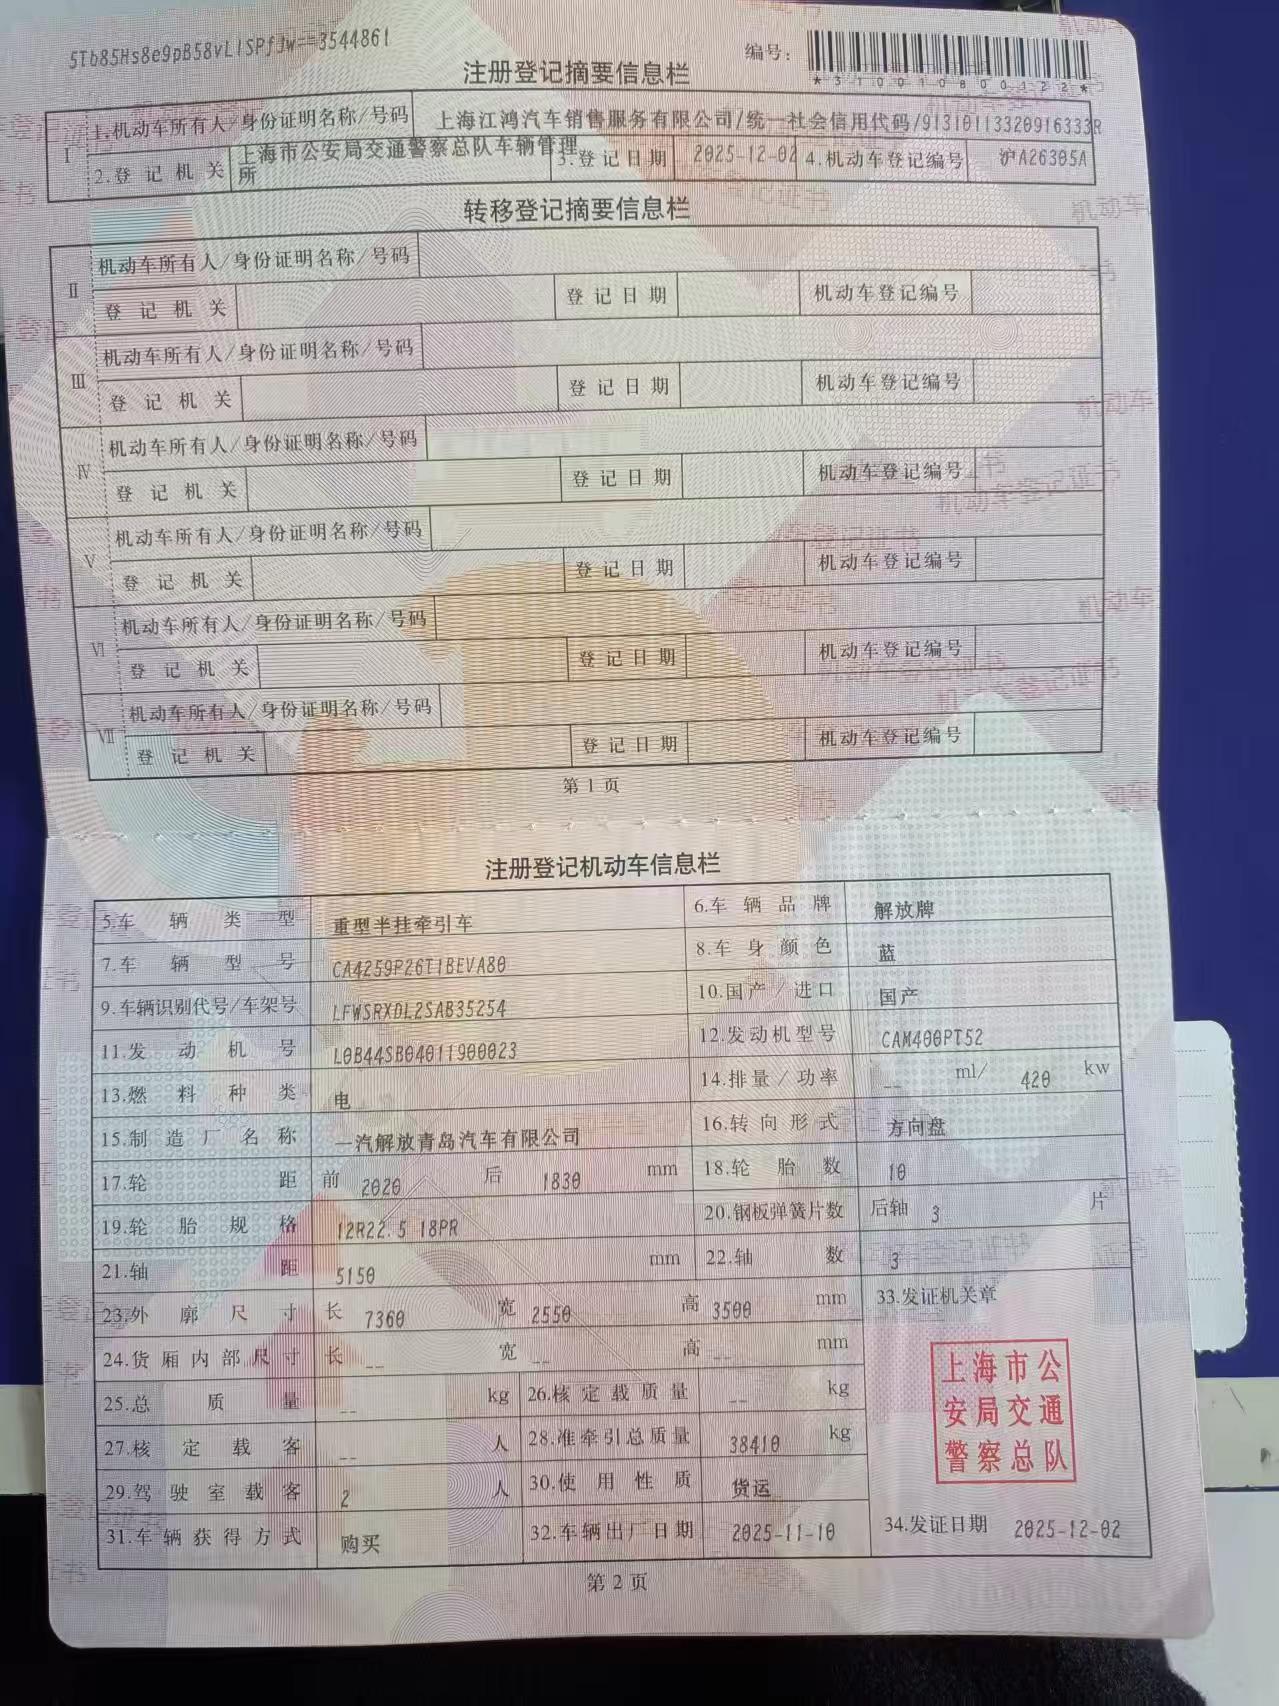 5Tb85Hs8e9pB58vLISPfJw==3544861
编号:
*310010800122*
注册登记摘要信息栏
Ⅰ 1.机动车所有人/身份证明名称/号码 上海江鸿汽车销售服务有限公司/统一社会信用代码/91310113320916333R
2.登记机关 上海市公安局交通警察总队车辆管理所 3.登记日期 2025-12-02 4.机动车登记编号 沪A26305A
转移登记摘要信息栏
Ⅱ 机动车所有人/身份证明名称/号码
登记机关 登记日期 机动车登记编号
Ⅲ 机动车所有人/身份证明名称/号码
登记机关 登记日期 机动车登记编号
Ⅳ 机动车所有人/身份证明名称/号码
登记机关 登记日期 机动车登记编号
Ⅴ 机动车所有人/身份证明名称/号码
登记机关 登记日期 机动车登记编号
Ⅵ 机动车所有人/身份证明名称/号码
登记机关 登记日期 机动车登记编号
Ⅶ 机动车所有人/身份证明名称/号码
登记机关 登记日期 机动车登记编号
第1页
注册登记机动车信息栏
5.车辆类型 重型半挂牵引车 6.车辆品牌 解放牌
7.车辆型号 CA4259P26T1BEVA80 8.车身颜色 蓝
9.车辆识别代号/车架号 LFWSRXDL2SAB35254 10.国产/进口 国产
11.发动机号 L0B44SB04011900023 12.发动机型号 CAM400PT52
13.燃料种类 电 14.排量/功率 -- ml/ 420 kw
15.制造厂名称 一汽解放青岛汽车有限公司 16.转向形式 方向盘
17.轮距 前 2020 后 1830 mm 18.轮胎数 10
19.轮胎规格 12R22.5 18PR 20.钢板弹簧片数 后轴 3 片
21.轴距 5150 mm 22.轴数 3
23.外廓尺寸 长 7360 宽 2550 高 3500 mm 33.发证机关章
24.货厢内部尺寸 长 -- 宽 -- 高 -- mm
25.总质量 -- kg 26.核定载质量 -- kg
27.核定载客 -- 人 28.准牵引总质量 38410 kg
29.驾驶室载客 2 人 30.使用性质 货运
31.车辆获得方式 购买 32.车辆出厂日期 2025-11-10 34.发证日期 2025-12-02
上海市公
安局交通
警察总队
第2页